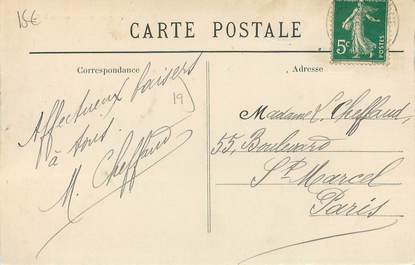 15€
CARTE POSTALE
Correspondance
Adresse
5c
POSTES
19
Affectueux baisers
à tous.
M. Cheffaud
Madame L. Cheffaud,
55, Boulevard
St. Marcel
Paris